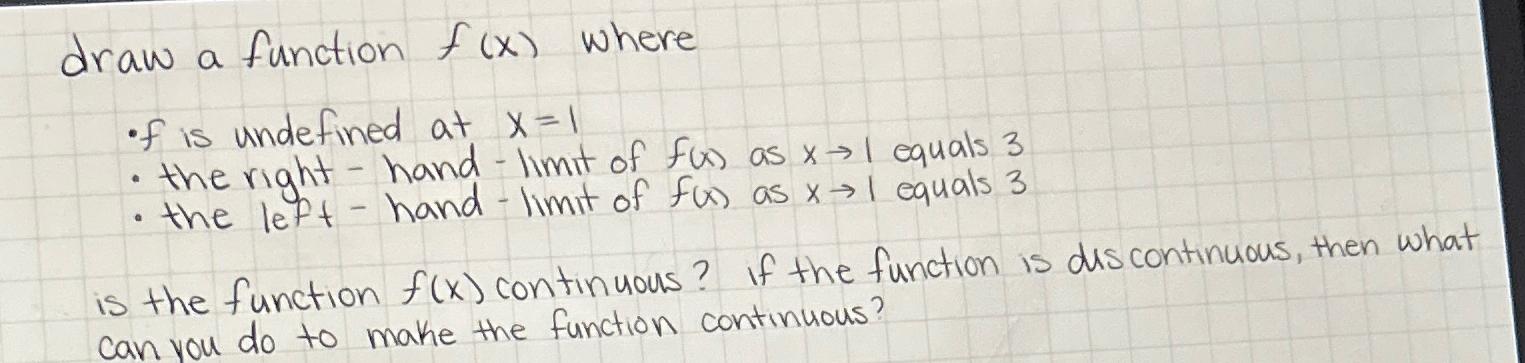 draw a function f(x) where
• f is undefined at x=1
• the right-hand-limit of f(x) as x→1 equals 3
• the left-hand-limit of f(x) as x→1 equals 3
is the function f(x) continuous? if the function is discontinuous, then what
can you do to make the function continuous?